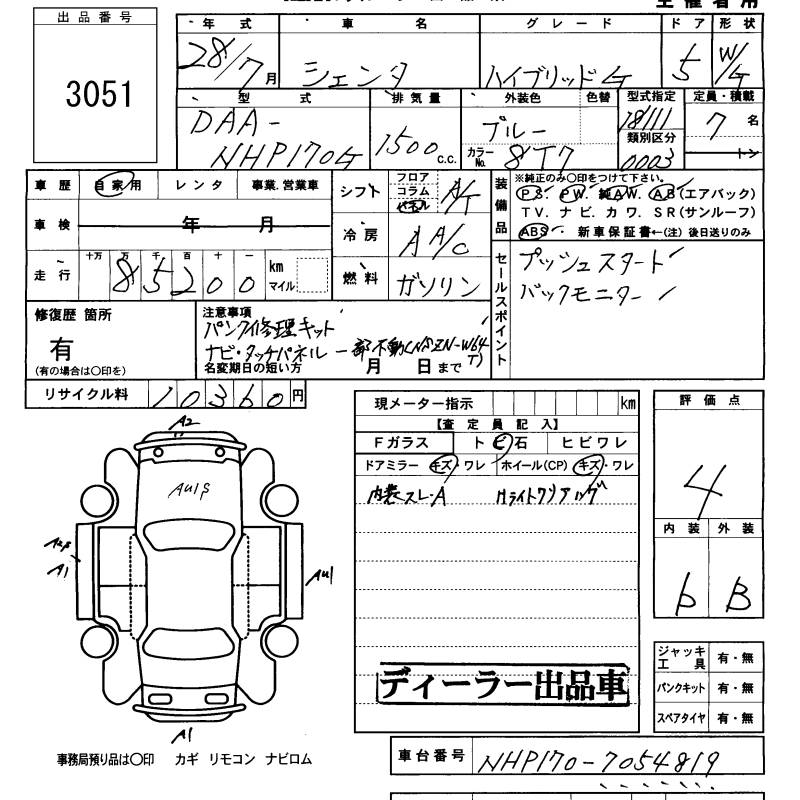 出品番号
3051
年式 車名 グレード ドア 形状
28/7月 シエンタ ハイブリッドG 5 W/G
型式 排気量 外装色 色替 型式指定 定員・積載
DAA-NHP170G 1500c.c. ブルー 18111 7名
カラーNo. 8T7 類別区分 0003 トン
車歴 自家用 レンタ 事業.営業車
車検 年 月
走行 十万 万 千 百 十 一 km マイル
85200
シフト フロア コラム パネル A/T
冷房 AA/C
燃料 ガソリン
装備品
※純正のみ○印をつけて下さい。
PS. PW. 純AW. AB(エアバック)
TV. ナビ. カワ. SR(サンルーフ)
ABS. 新車保証書←(注)後日送りのみ
セールスポイント
プッシュスタート
バックモニター
修復歴 箇所
有
(有の場合は○印を)
注意事項
パンク修理キット
ナビ・タッチパネル一部不動(NSZN-W64T)
名変期日の短い方 月 日まで
リサイクル料 10360円
現メーター指示 km
【査定員記入】
Fガラス トビ石 ヒビワレ
ドアミラー キズ・ワレ ホイール(CP) キズ・ワレ
内装スレ-A Hライトクリアハゲ
評価点
4
内装 外装
b B
A2
Au1β
A2β
A1
Au1
A1
ディーラー出品車
ジャッキ工具 有・無
パンクキット 有・無
スペアタイヤ 有・無
事務局預り品は○印 カギ リモコン ナビロム
車台番号 NHP170-7054819